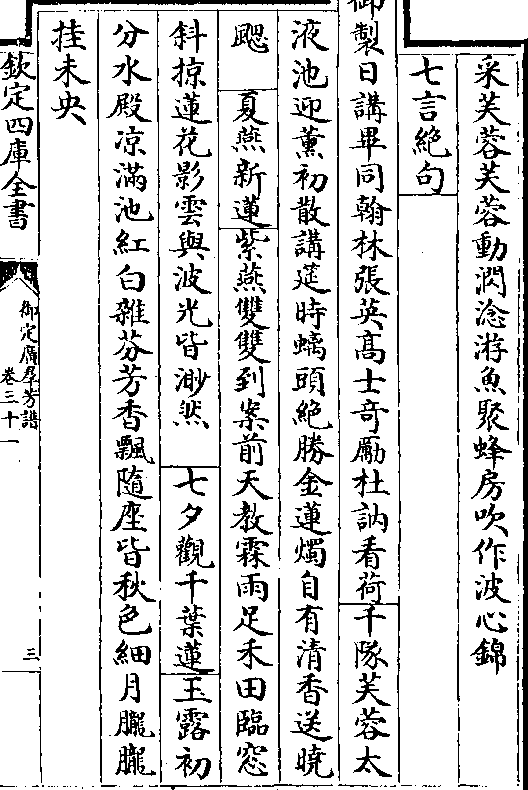 采芙蓉芙蓉動閃淰游魚聚蜂房吹作波心錦
七言絶句
御製日講畢同翰林張英髙士竒勵杜訥看荷千隊芙蓉太
液池迎薰初散講筵時螭頭絶勝金蓮燭自有清香送曉
颸 夏燕新蓮紫燕雙雙到案前天教霖雨足禾田臨窓
斜掠蓮花影雲與波光皆渺然 七夕觀千葉蓮玉露初
分水殿凉滿池紅白雜芬芳香飄隨座皆秋色細月朧朧
挂未央
欽定四庫全書
御定廣羣芳譜
卷三十一
三